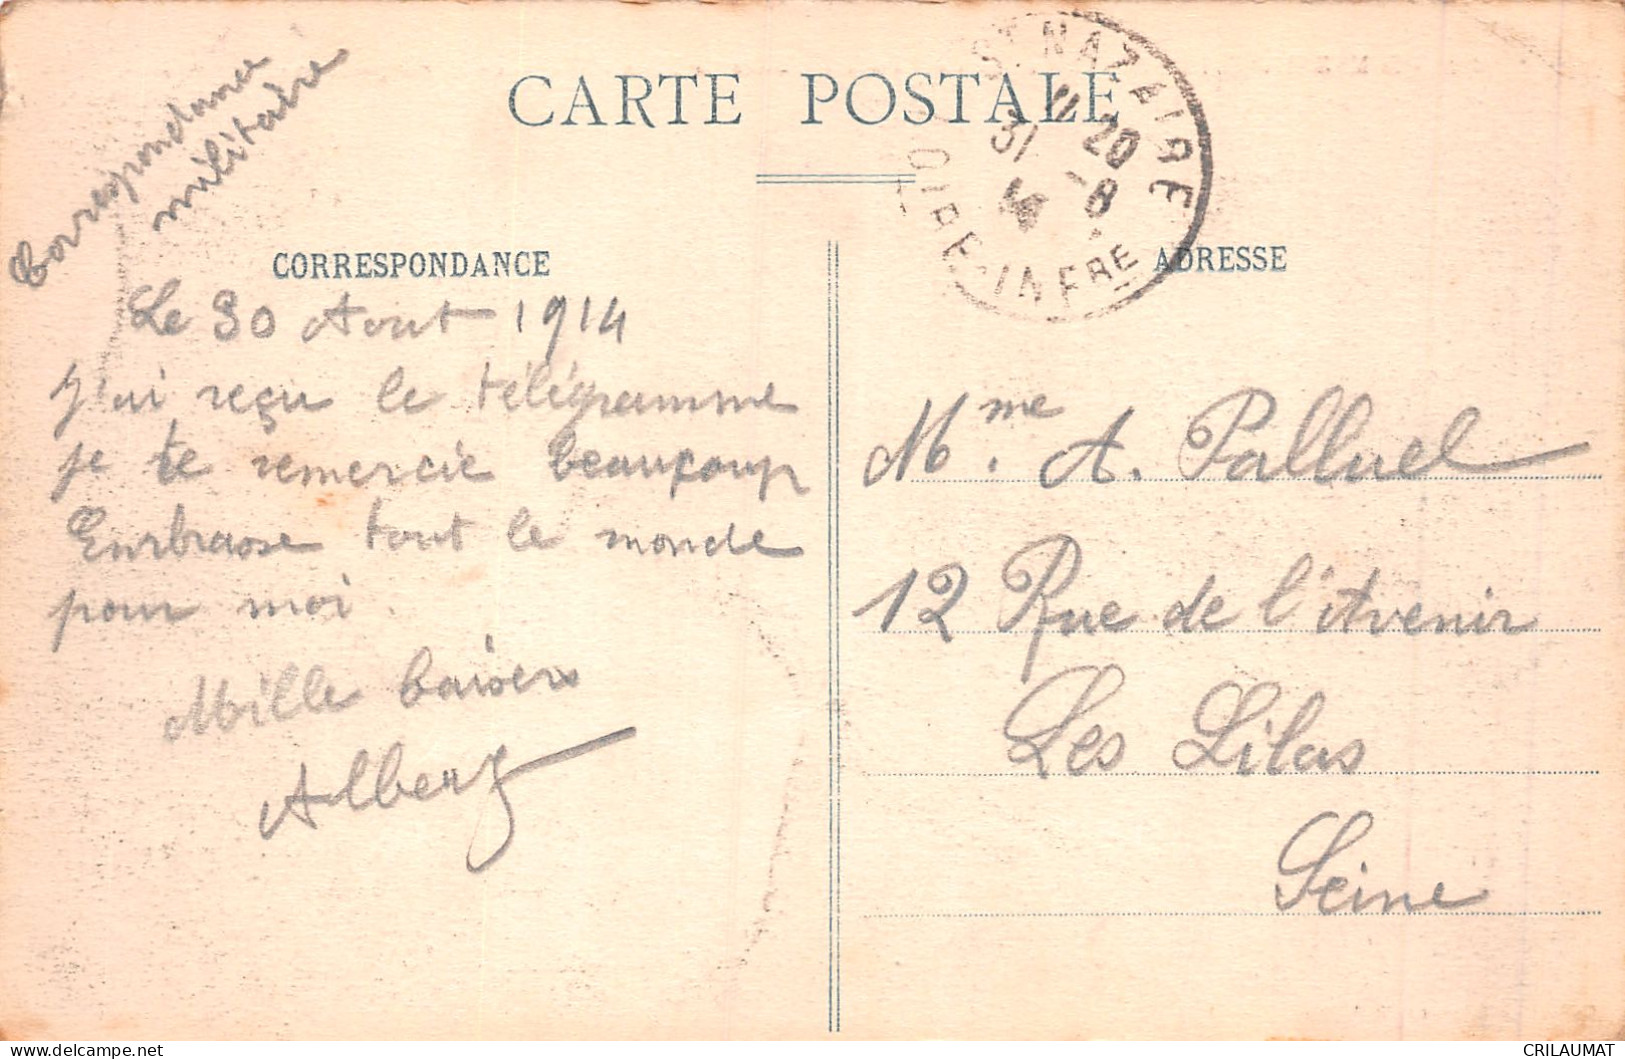 CARTE POSTALE
Correspondance
militaire
ST NAZAIRE
11 20
31 - 8
14
LOIRE-INFRE
CORRESPONDANCE
Le 30 Aout 1914
J'ai reçu le télégramme
je te remercie beaucoup
Embrasse tout le monde
pour moi.
Mille baisers
Albert
ADRESSE
Mme. A. Palluel
12 Rue de l'Avenir
Les Lilas
Seine
CRILAUMAT